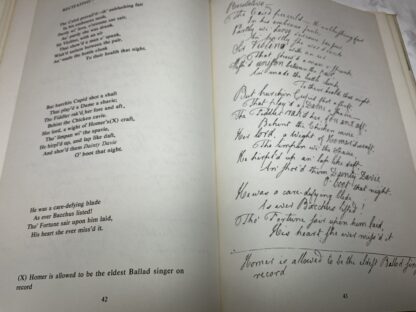 RECITATIVO
The Caird prevail'd—th' unblushing fair
In his embraces sunk,
Partly wi' love o'ercome sae sair,
An' partly she was drunk.
Sir Violino, with an air
That show'd a man o' spunk,
Wish'd unison between the pair,
An' made the bottle clunk
To their health that night.
But hurchin Cupid shot a shaft
That play'd a Dame a shavie;
The Fiddler rak'd her, fore and aft,
Behint the Chicken cavie.
Her lord, a wight of Homer's(X) craft,
Tho' limpan wi' the spavie,
He hirpl'd up, and lap like daft,
And shor'd them Dainty Davie
O' boot that night.
He was a care-defying blade
As ever Bacchus listed!
Tho' Fortune sair upon him laid,
His heart she ever miss'd it.
(X) Homer is allowed to be the eldest Ballad singer on
record
42
Recitativo
The Caird prevail'd — th' unblushing fair
In his embraces sunk,
Partly wi' love o'ercome sae sair
An' partly she was drunk
Sir Violino with an air
That show'd a man o' spunk
Wish'd unison between the pair
An' made the bottle clunk
To their health that night
But hurchin Cupid shot a shaft
That play'd a Dame a shavie
The Fiddler rak'd her, fore and aft,
Behint the Chicken cavie
Her lord, a wight of Homer's craft
Tho' limpan wi' the spavie
He hirpl'd up an' lap like daft
An' shor'd them Dainty Davie
O' boot that night
He was a care-defying blade
As ever Bacchus listed!
Tho' Fortune sair upon him laid,
His heart she ever miss'd it
Homer is allowed to be the eldest Ballad singer on
record
43